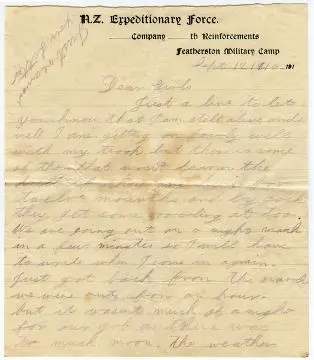 N.Z. Expeditionary Force.
Company th Reinforcements
Featherston Military Camp
191
Dear Girls
Just a line to let
you know that I am still alive and
well I am getting on fairly well
with my troop but there is some
of them that wont learn the
drill if they are here for
twelve mounths and by gosh
they get some growling at too.
We are going out on a night march
in a few minutes so I will have
to write when I come in again.
Just got back from the march
we were out about an hour.
but it wasen't much of a night
for our job as there was
to much moon. the weather